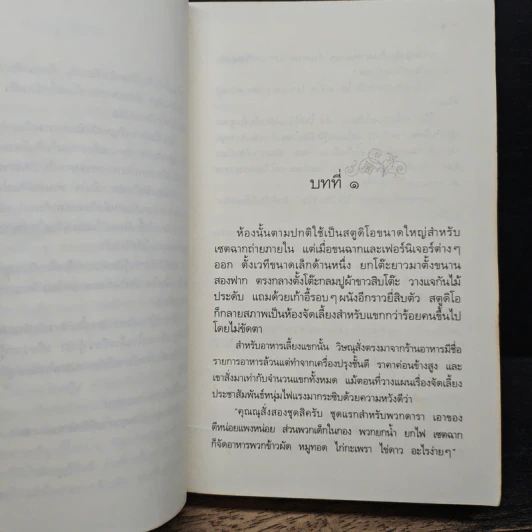 บทที่ ๑
ห้องนั้นตามปกติใช้เป็นสตูดิโอขนาดใหญ่สำหรับ
เซตฉากถ่ายภายใน แต่เมื่อขนฉากและเฟอร์นิเจอร์ต่างๆ
ออก ตั้งเวทีขนาดเล็กด้านหนึ่ง ยกโต๊ะยาวมาตั้งขนาน
สองฟาก ตรงกลางตั้งโต๊ะกลมปูผ้าขาวสิบโต๊ะ วางแจกันไม้
ประดับ แถมด้วยเก้าอี้รอบๆ ผนังอีกราวยี่สิบตัว สตูดิโอ
ก็กลายสภาพเป็นห้องจัดเลี้ยงสำหรับแขกกว่าร้อยคนขึ้นไป
โดยไม่ขัดตา
สำหรับอาหารเลี้ยงแขกนั้น วิษณุสั่งตรงมาจากร้านอาหารมีชื่อ
รายการอาหารล้วนแต่ทำจากเครื่องปรุงชั้นดี ราคาค่อนข้างสูง และ
เขาสั่งมาเท่ากับจำนวนแขกทั้งหมด แม้ตอนที่วางแผนเรื่องจัดเลี้ยง
ประชาสัมพันธ์หนุ่มไฟแรงมากระซิบด้วยความหวังดีว่า
"คุณณุสั่งสองชุดสิครับ ชุดแรกสำหรับพวกดารา เอาของ
ดีหน่อยแพงหน่อย ส่วนพวกเด็กในกอง พวกยกน้ำ ยกไฟ เซตฉาก
ก็จัดอาหารพวกข้าวผัด หมูทอด ไก่กะเพรา ไข่ดาว อะไรง่ายๆ"